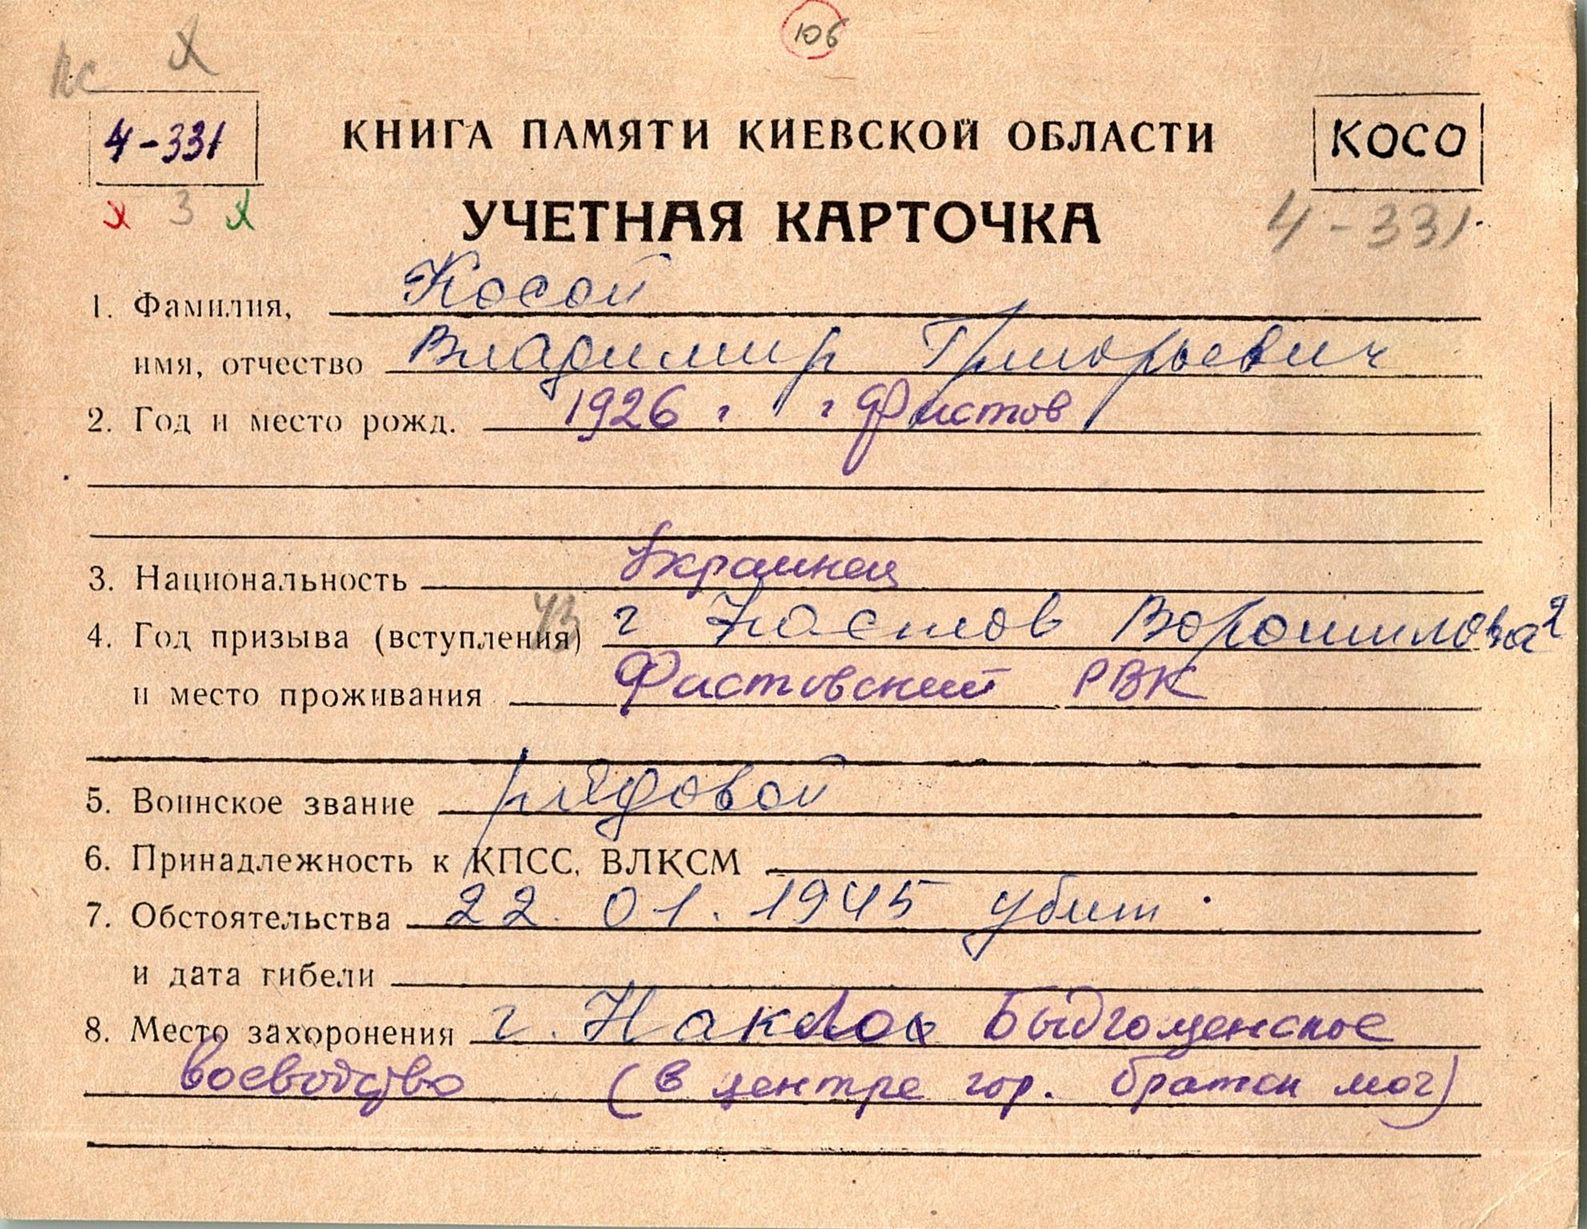 106
пс х
4-331
КНИГА ПАМЯТИ КИЕВСКОЙ ОБЛАСТИ
КОСО
х 3 х
УЧЕТНАЯ КАРТОЧКА
4-331
1. Фамилия, Косой
имя, отчество Владимир Григорьевич
2. Год и место рожд. 1926 г. г Фастов
3. Национальность Украинец
4. Год призыва (вступления) г Фастов Ворошилова 2
и место проживания Фастовский РВК
5. Воинское звание рядовой
6. Принадлежность к КПСС, ВЛКСМ
7. Обстоятельства 22. 01. 1945 убит.
и дата гибели
8. Место захоронения г. Накло Быдгощенское
воеводство (в центре гор. братск мог)